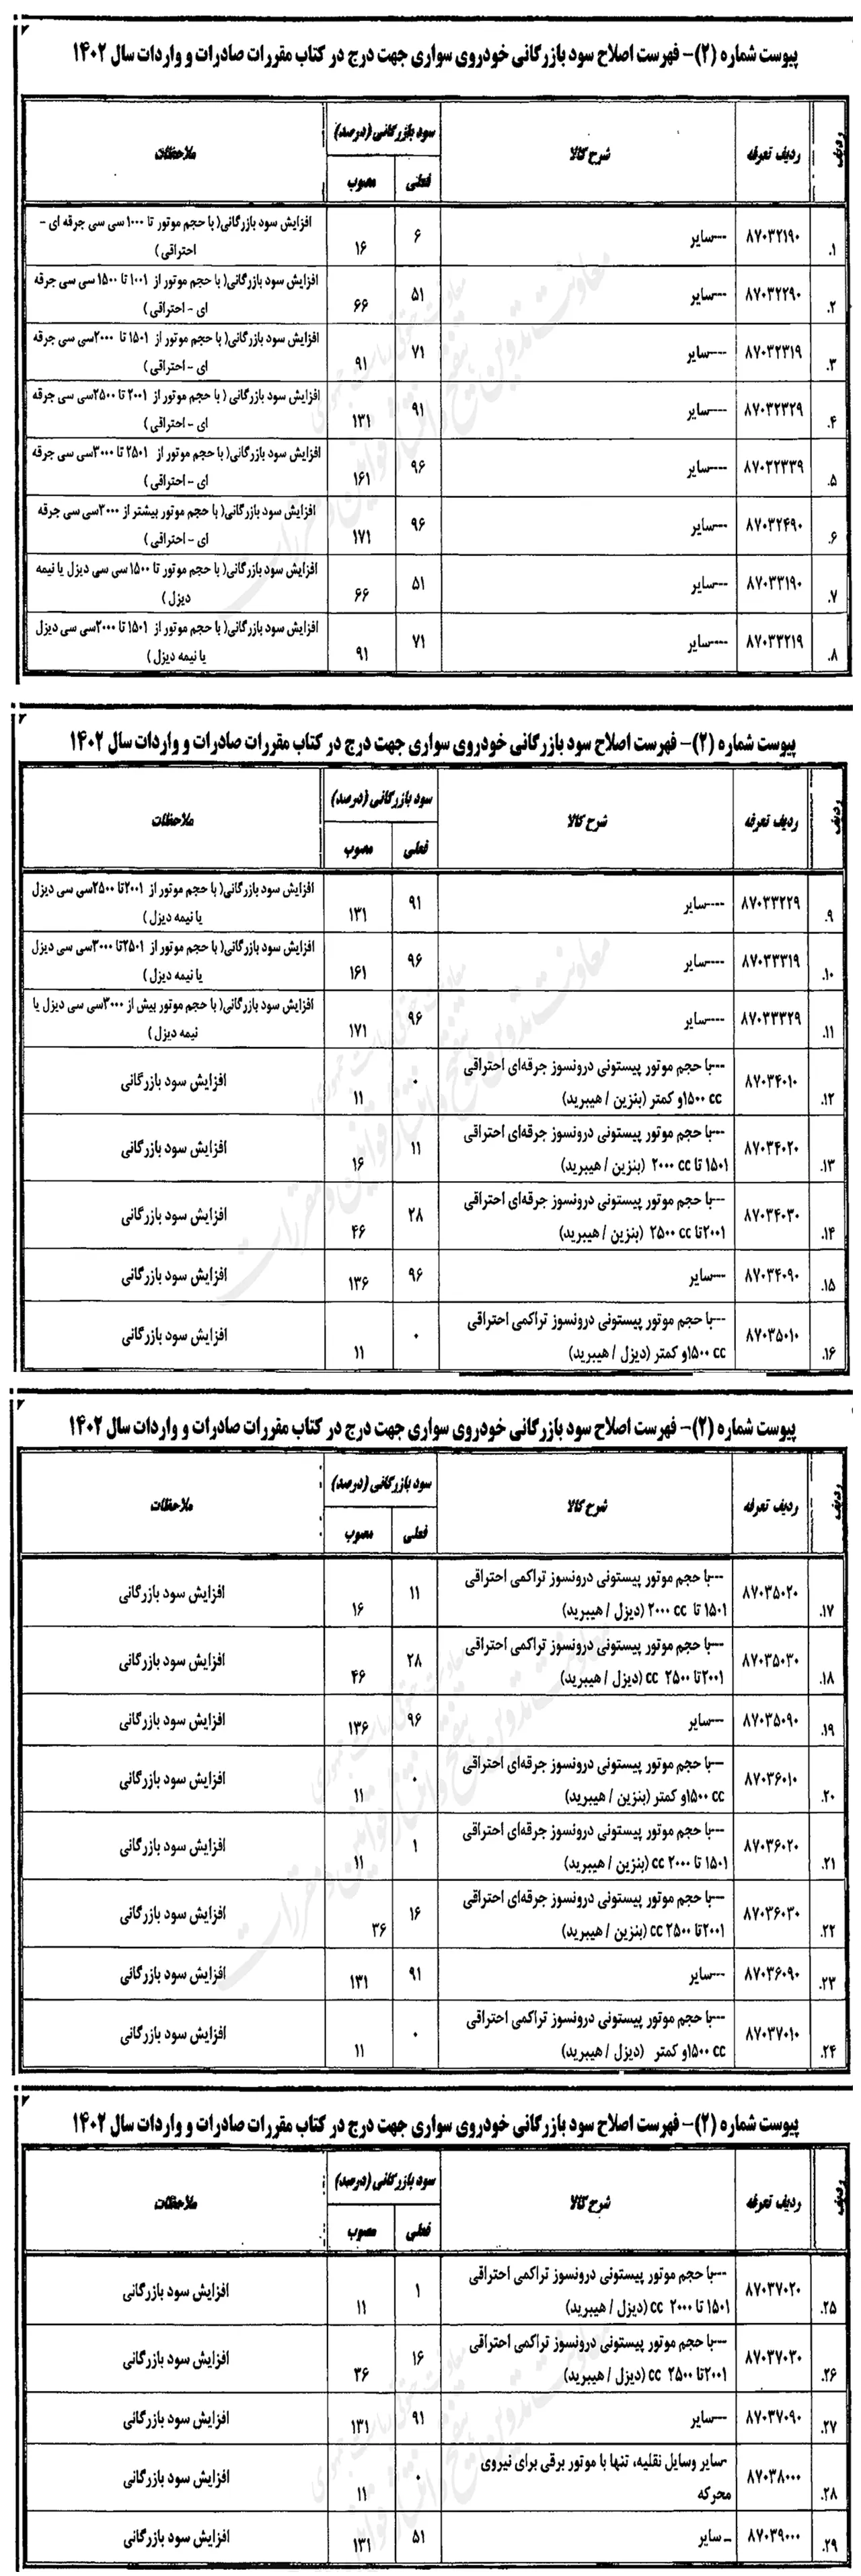 پیوست شماره (۲)- فهرست اصلاح سود بازرگانی خودروی سواری جهت درج در کتاب مقررات صادرات و واردات سال ۱۴۰۲
ردیف ردیف تعرفه شرح کالا سود بازرگانی (درصد) ملاحظات
فعلی مصوب
۱. ۸۷۰۳۲۱۹۰ ---سایر ۶ ۱۶ افزایش سود بازرگانی( با حجم موتور تا ۱۰۰۰ سی سی جرقه ای -
احتراقی )
۲. ۸۷۰۳۲۲۹۰ ---سایر ۵۱ ۶۶ افزایش سود بازرگانی( با حجم موتور از ۱۰۰۱ تا ۱۵۰۰ سی سی جرقه
ای - احتراقی )
۳. ۸۷۰۳۲۳۱۹ ----سایر ۷۱ ۹۱ افزایش سود بازرگانی( با حجم موتور از ۱۵۰۱ تا ۲۰۰۰سی سی جرقه
ای - احتراقی )
۴. ۸۷۰۳۲۳۲۹ ----سایر ۹۱ ۱۳۱ افزایش سود بازرگانی( با حجم موتور از ۲۰۰۱ تا ۲۵۰۰سی سی جرقه
ای - احتراقی )
۵. ۸۷۰۳۲۳۳۹ ----سایر ۹۶ ۱۶۱ افزایش سود بازرگانی( با حجم موتور از ۲۵۰۱ تا ۳۰۰۰سی سی جرقه
ای - احتراقی )
۶. ۸۷۰۳۲۴۹۰ ---سایر ۹۶ ۱۷۱ افزایش سود بازرگانی( با حجم موتور بیشتر از ۳۰۰۰سی سی جرقه
ای - احتراقی )
۷. ۸۷۰۳۳۱۹۰ ---سایر ۵۱ ۶۶ افزایش سود بازرگانی( با حجم موتور تا ۱۵۰۰ سی سی دیزل یا نیمه
دیزل )
۸. ۸۷۰۳۳۲۱۹ ----سایر ۷۱ ۹۱ افزایش سود بازرگانی( با حجم موتور از ۱۵۰۱ تا ۲۰۰۰سی سی دیزل
یا نیمه دیزل )
پیوست شماره (۲)- فهرست اصلاح سود بازرگانی خودروی سواری جهت درج در کتاب مقررات صادرات و واردات سال ۱۴۰۲
ردیف ردیف تعرفه شرح کالا سود بازرگانی (درصد) ملاحظات
فعلی مصوب
۹. ۸۷۰۳۳۲۲۹ ----سایر ۹۱ ۱۳۱ افزایش سود بازرگانی( با حجم موتور از ۲۰۰۱تا ۲۵۰۰سی سی دیزل
یا نیمه دیزل )
۱۰. ۸۷۰۳۳۳۱۹ ----سایر ۹۶ ۱۶۱ افزایش سود بازرگانی( با حجم موتور از ۲۵۰۱تا ۳۰۰۰سی سی دیزل
یا نیمه دیزل )
۱۱. ۸۷۰۳۳۳۲۹ ----سایر ۹۶ ۱۷۱ افزایش سود بازرگانی( با حجم موتور بیش از ۳۰۰۰سی سی دیزل یا
نیمه دیزل )
۱۲. ۸۷۰۳۴۰۱۰ ---با حجم موتور پیستونی درونسوز جرقه‌ای احتراقی ۰ ۱۱ افزایش سود بازرگانی
۱۵۰۰ cc و کمتر (بنزین / هیبرید)
۱۳. ۸۷۰۳۴۰۲۰ ---با حجم موتور پیستونی درونسوز جرقه‌ای احتراقی ۱۱ ۱۶ افزایش سود بازرگانی
۱۵۰۱ تا ۲۰۰۰ cc (بنزین / هیبرید)
۱۴. ۸۷۰۳۴۰۳۰ ---با حجم موتور پیستونی درونسوز جرقه‌ای احتراقی ۲۸ ۴۶ افزایش سود بازرگانی
۲۰۰۱تا ۲۵۰۰ cc (بنزین / هیبرید)
۱۵. ۸۷۰۳۴۰۹۰ ---سایر ۹۶ ۱۳۶ افزایش سود بازرگانی
۱۶. ۸۷۰۳۵۰۱۰ ---با حجم موتور پیستونی درونسوز تراکمی احتراقی ۰ ۱۱ افزایش سود بازرگانی
۱۵۰۰ cc و کمتر (دیزل / هیبرید)
پیوست شماره (۲)- فهرست اصلاح سود بازرگانی خودروی سواری جهت درج در کتاب مقررات صادرات و واردات سال ۱۴۰۲
ردیف ردیف تعرفه شرح کالا سود بازرگانی (درصد) ملاحظات
فعلی مصوب
۱۷. ۸۷۰۳۵۰۲۰ ---با حجم موتور پیستونی درونسوز تراکمی احتراقی ۱۱ ۱۶ افزایش سود بازرگانی
۱۵۰۱ تا ۲۰۰۰ cc (دیزل / هیبرید)
۱۸. ۸۷۰۳۵۰۳۰ ---با حجم موتور پیستونی درونسوز تراکمی احتراقی ۲۸ ۴۶ افزایش سود بازرگانی
۲۰۰۱تا ۲۵۰۰ cc (دیزل / هیبرید)
۱۹. ۸۷۰۳۵۰۹۰ ---سایر ۹۶ ۱۳۶ افزایش سود بازرگانی
۲۰. ۸۷۰۳۶۰۱۰ ---با حجم موتور پیستونی درونسوز جرقه‌ای احتراقی ۰ ۱۱ افزایش سود بازرگانی
۱۵۰۰ cc و کمتر (بنزین / هیبرید)
۲۱. ۸۷۰۳۶۰۲۰ ---با حجم موتور پیستونی درونسوز جرقه‌ای احتراقی ۱ ۱۱ افزایش سود بازرگانی
۱۵۰۱ تا ۲۰۰۰ cc (بنزین / هیبرید)
۲۲. ۸۷۰۳۶۰۳۰ ---با حجم موتور پیستونی درونسوز جرقه‌ای احتراقی ۱۶ ۳۶ افزایش سود بازرگانی
۲۰۰۱تا ۲۵۰۰ cc (بنزین / هیبرید)
۲۳. ۸۷۰۳۶۰۹۰ ---سایر ۹۱ ۱۳۱ افزایش سود بازرگانی
۲۴. ۸۷۰۳۷۰۱۰ ---با حجم موتور پیستونی درونسوز تراکمی احتراقی ۰ ۱۱ افزایش سود بازرگانی
۱۵۰۰ cc و کمتر (دیزل / هیبرید)
پیوست شماره (۲)- فهرست اصلاح سود بازرگانی خودروی سواری جهت درج در کتاب مقررات صادرات و واردات سال ۱۴۰۲
ردیف ردیف تعرفه شرح کالا سود بازرگانی (درصد) ملاحظات
فعلی مصوب
۲۵. ۸۷۰۳۷۰۲۰ ---با حجم موتور پیستونی درونسوز تراکمی احتراقی ۱ ۱۱ افزایش سود بازرگانی
۱۵۰۱ تا ۲۰۰۰ cc (دیزل / هیبرید)
۲۶. ۸۷۰۳۷۰۳۰ ---با حجم موتور پیستونی درونسوز تراکمی احتراقی ۱۶ ۳۶ افزایش سود بازرگانی
۲۰۰۱تا ۲۵۰۰ cc (دیزل / هیبرید)
۲۷. ۸۷۰۳۷۰۹۰ ---سایر ۹۱ ۱۳۱ افزایش سود بازرگانی
۲۸. ۸۷۰۳۸۰۰۰ -سایر وسایل نقلیه، تنها با موتور برقی برای نیروی ۰ ۱۱ افزایش سود بازرگانی
محرکه
۲۹. ۸۷۰۳۹۰۰۰ ـ سایر ۵۱ ۱۳۱ افزایش سود بازرگانی